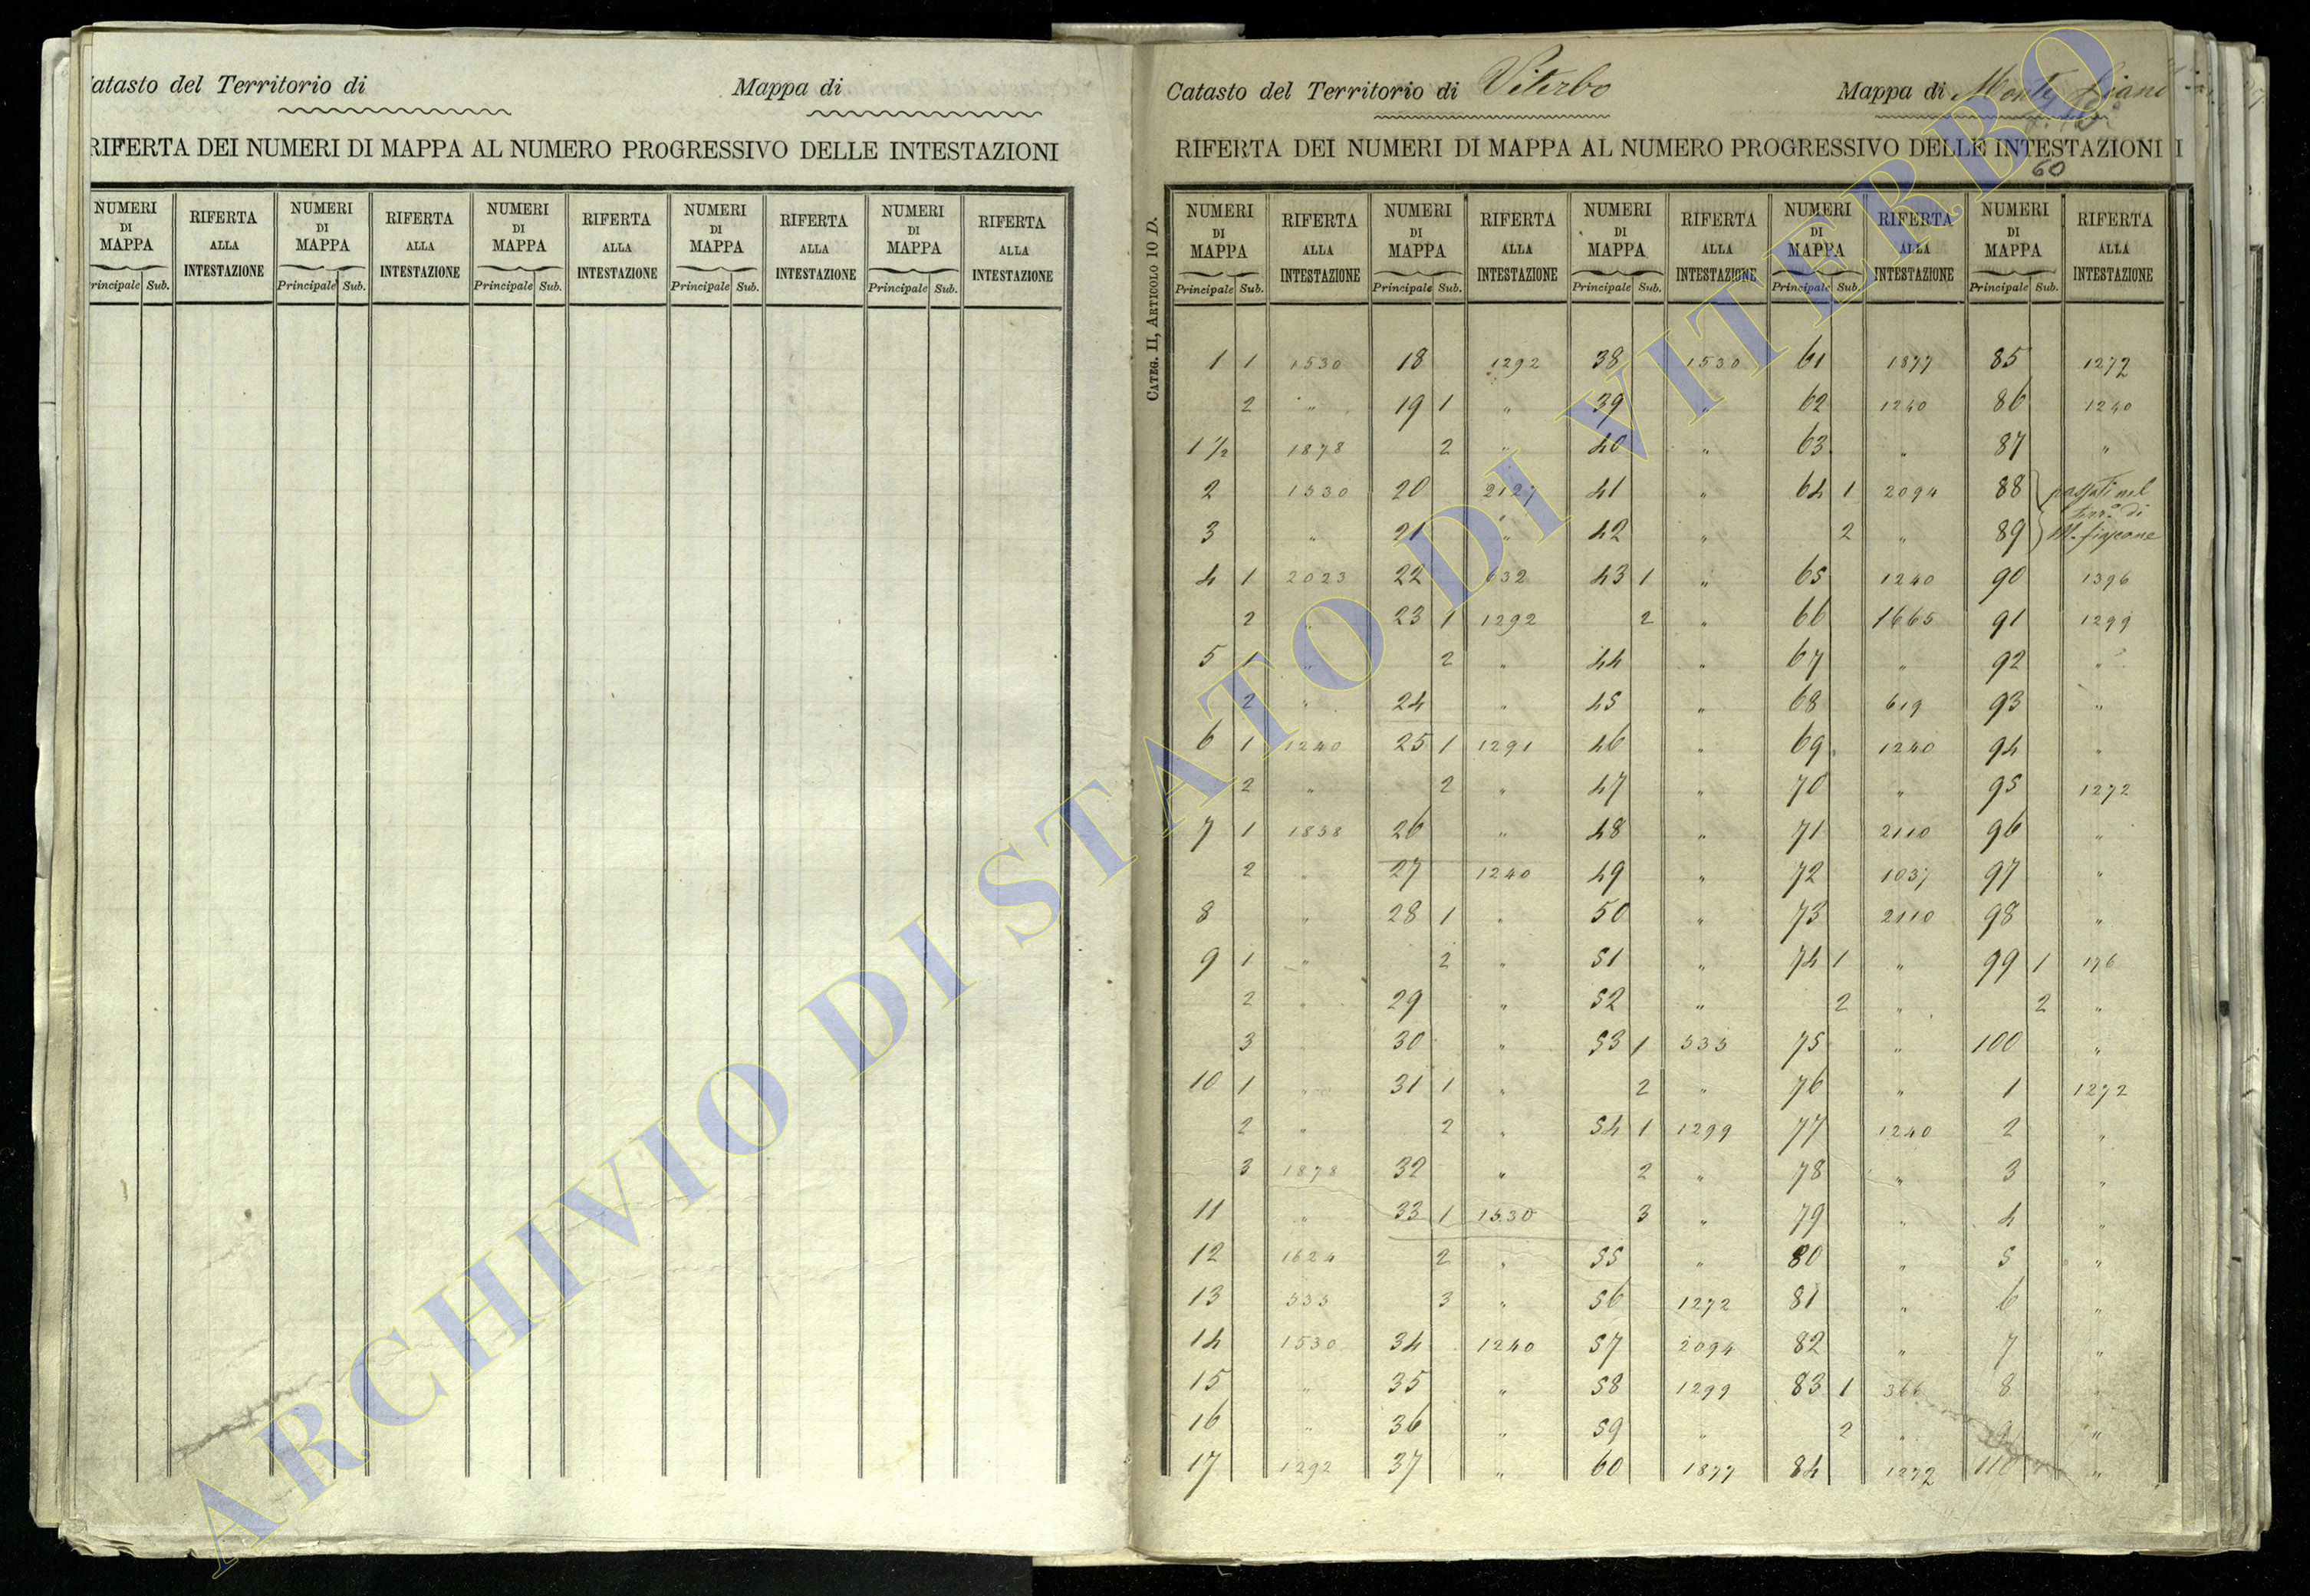 atasto del Territorio di Mappa di
RIFERTA DEI NUMERI DI MAPPA AL NUMERO PROGRESSIVO DELLE INTESTAZIONI
NUMERI DI MAPPA RIFERTA ALLA INTESTAZIONE NUMERI DI MAPPA RIFERTA ALLA INTESTAZIONE NUMERI DI MAPPA RIFERTA ALLA INTESTAZIONE NUMERI DI MAPPA RIFERTA ALLA INTESTAZIONE NUMERI DI MAPPA RIFERTA ALLA INTESTAZIONE
rincipale Sub. Principale Sub. Principale Sub. Principale Sub. Principale Sub.
Catasto del Territorio di Viterbo Mappa di Monte
RIFERTA DEI NUMERI DI MAPPA AL NUMERO PROGRESSIVO DELLE INTESTAZIONI
60
CATEG. II, ARTICOLO 10 D.
NUMERI DI MAPPA RIFERTA ALLA INTESTAZIONE NUMERI DI MAPPA RIFERTA ALLA INTESTAZIONE NUMERI DI MAPPA RIFERTA ALLA INTESTAZIONE NUMERI DI MAPPA RIFERTA ALLA INTESTAZIONE NUMERI DI MAPPA RIFERTA ALLA INTESTAZIONE
Principale Sub. Principale Sub. Principale Sub. Principale Sub. Principale Sub.
1 1 1530 18 1292 38 1530 61 1877 85 1272
2 " 19 1 " 39 " 62 1240 86 1240
1 1/2 1878 2 " 40 " 63 " 87 "
2 1530 20 2127 41 " 64 1 2094 88 passati nel
3 " 21 " 42 " 2 " 89 terr.o di M. fiascone
4 1 2023 22 632 43 1 " 65 1240 90 1396
2 " 23 1 1292 2 " 66 1665 91 1299
5 1 " 2 " 44 " 67 " 92 "
2 " 24 " 45 " 68 619 93 "
6 1 1240 25 1 1291 46 " 69 1240 94 "
2 " 2 " 47 " 70 " 95 1272
7 1 1838 26 " 48 " 71 2110 96 "
2 " 27 1240 49 " 72 1037 97 "
8 " 28 1 " 50 " 73 2110 98 "
9 1 " 2 " 51 " 74 1 " 99 1 176
2 " 29 " 52 " 2 " 2 "
3 " 30 " 53 1 535 75 " 100 "
10 1 " 31 1 " 2 " 76 " 1 1272
2 " 2 " 54 1 1299 77 1240 2 "
3 1878 32 " 2 " 78 " 3 "
11 " 33 1 1530 3 " 79 " 4 "
12 1624 2 " 55 " 80 " 5 "
13 535 3 " 56 1272 81 " 6 "
14 1530 34 1240 57 2094 82 " 7 "
15 " 35 " 58 1299 83 1 366 8 "
16 " 36 " 59 " 2 " 9 "
17 1292 37 " 60 1877 84 1272 110 "
ARCHIVIO DI STATO DI VITERBO